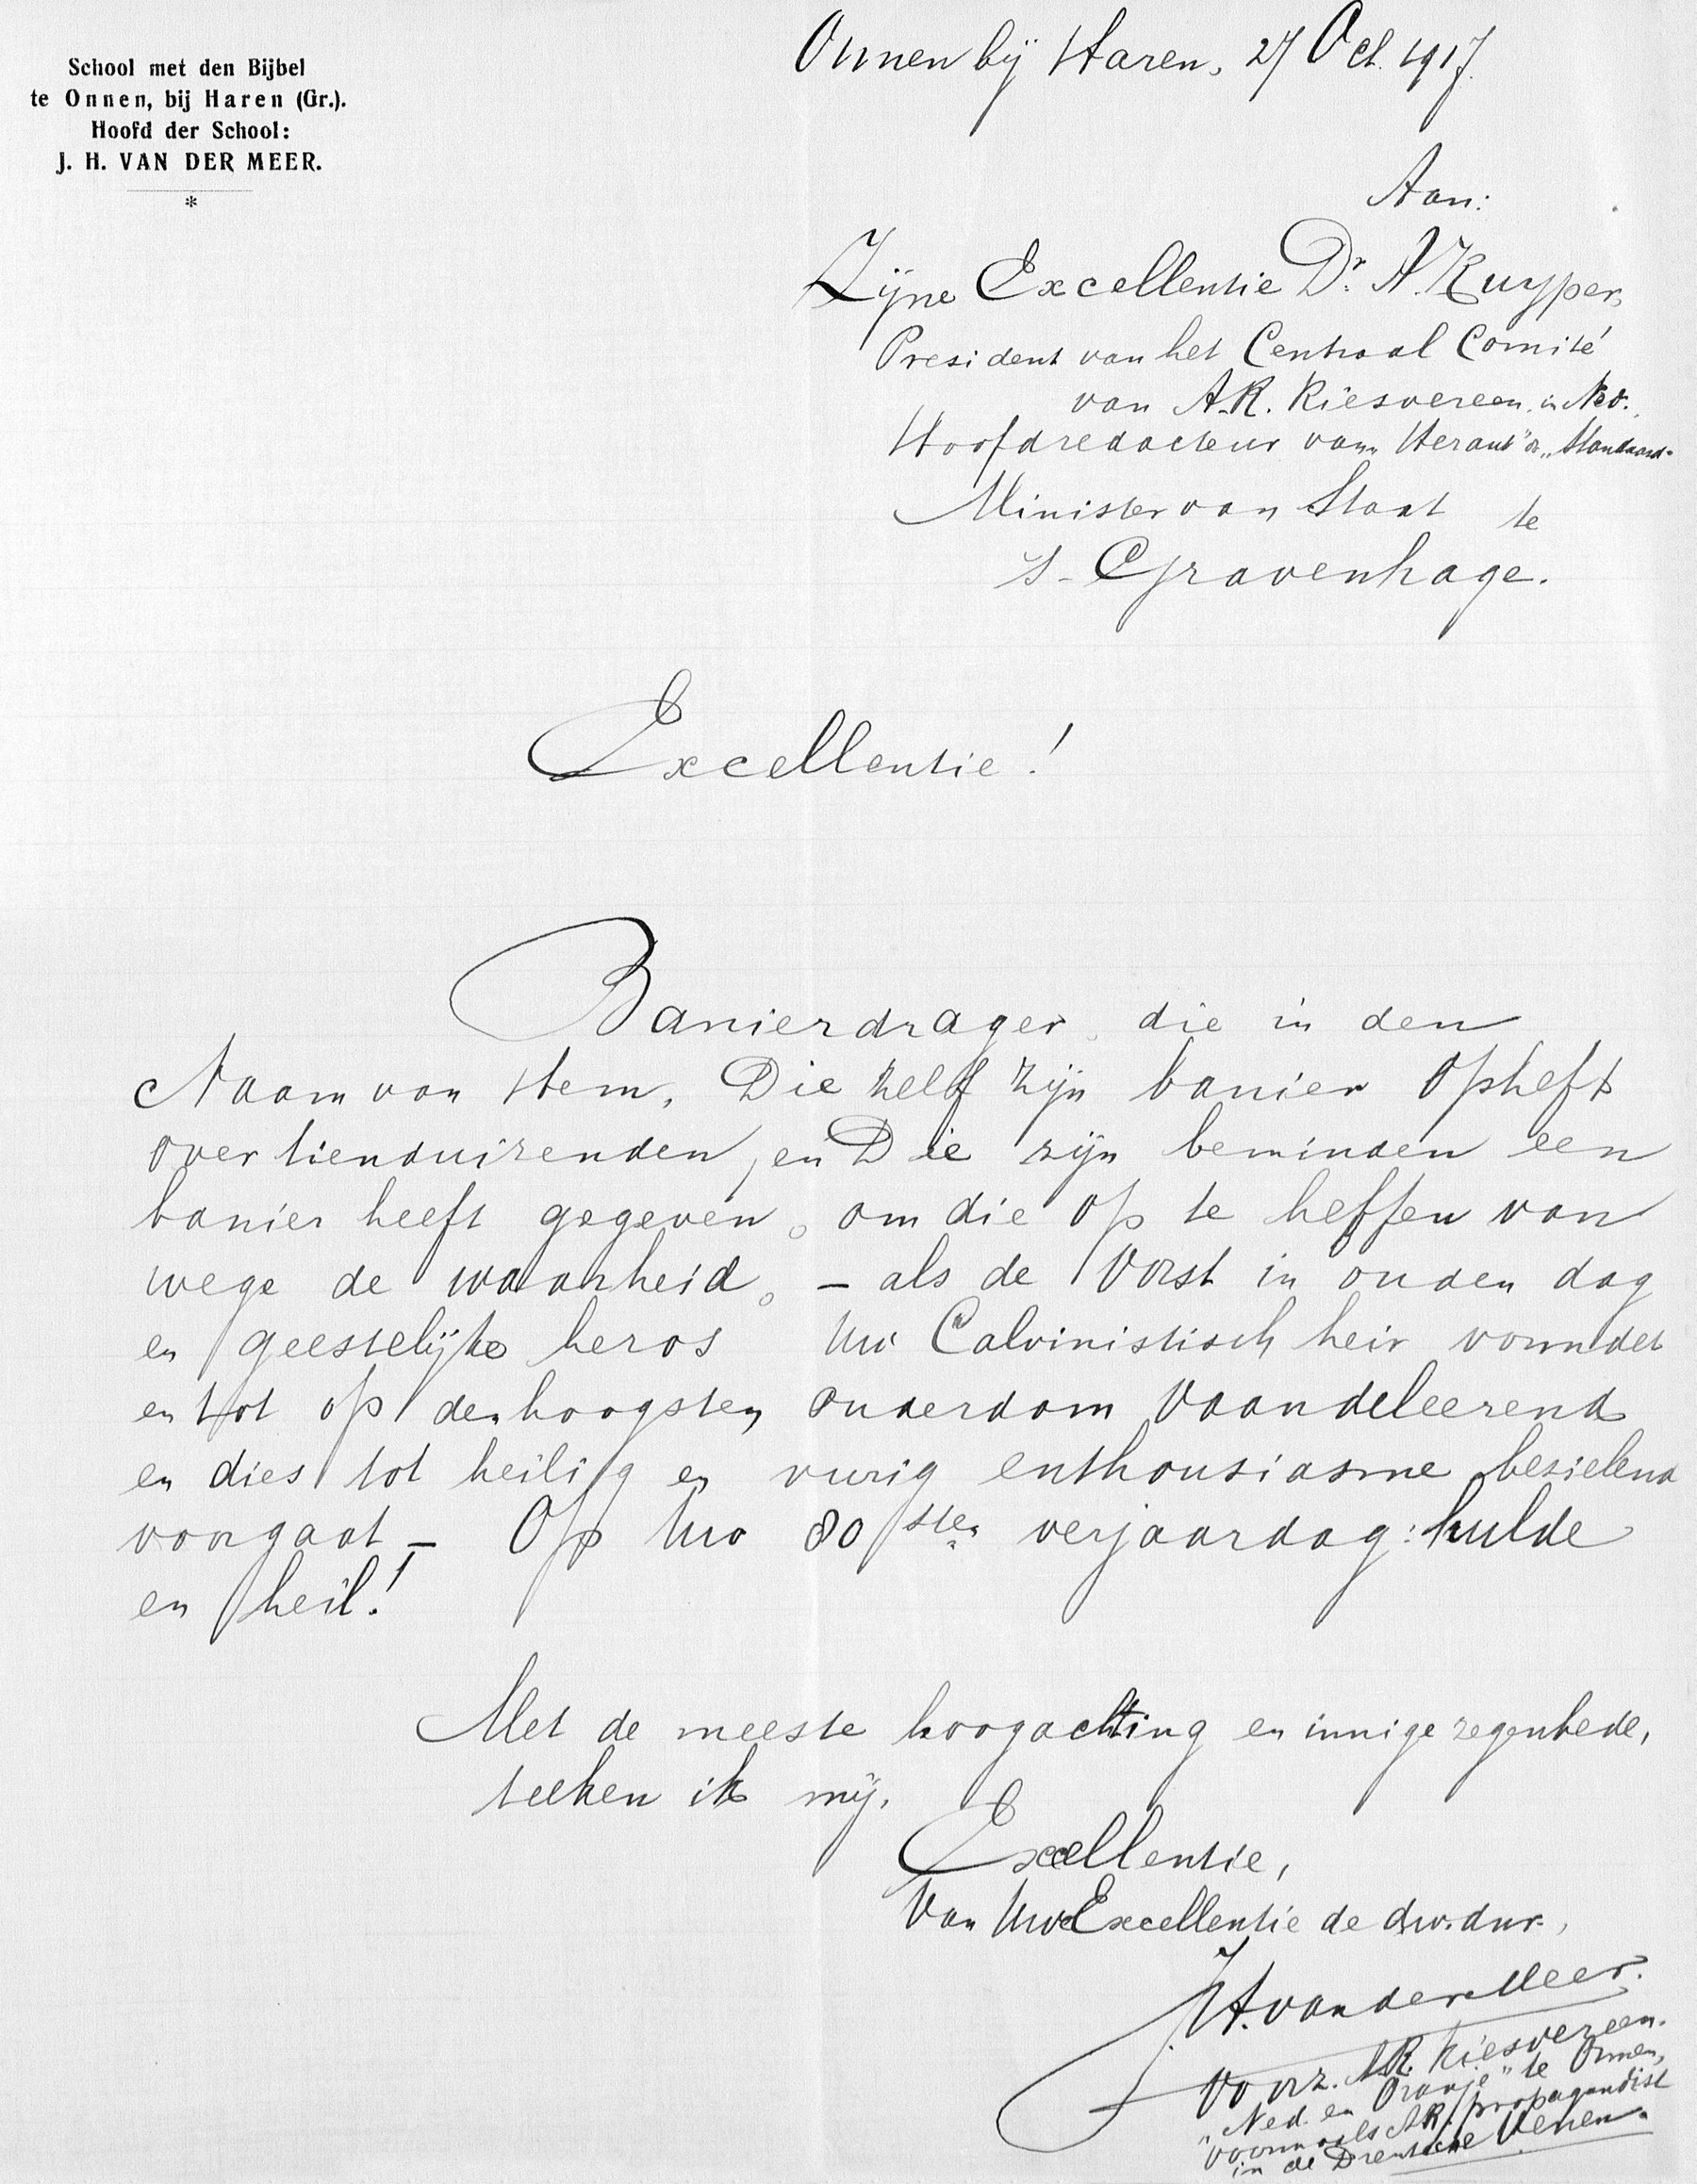 School met den Bijbel
te Onnen, bij Haren (Gr.).
Hoofd der School:
J. H. VAN DER MEER.
*
Onnen bij Haren, 27 Oct. 1917.
Aan:
Zijne Excellentie Dr. A. Kuyper,
President van het Centraal Comité
van A.R. Kiesvereen. in Ned.
Hoofdredacteur van "Heraut" en "Standaard"
Minister van Staat te
's-Gravenhage.
Excellentie!
Banierdrager, die in den
Naam van Hem, Die zelf zijn banier opheft
over tienduizenden, en Die zijn beminden een
banier heeft gegeven, om die op te heffen van
wege de waarheid, – als de Vorst in ouden dag
en geestelijke heros Uw Calvinistisch heir
en tot op den hoogsten ouderdom vaandeleerend
en dies tot heilig en vurig enthousiasme bezielend
voorgaat – Op Uw 80sten verjaardag: hulde
en heil!
Met de meeste hoogachting en innige zegenbede,
teeken ik mij,
Excellentie,
Van Uwe Excellentie de dw. dnr.,
J.H. van der Meer.
Voorz. A.R. Kiesvereen.
"Ned. en Oranje" te Onnen,
voormaals A.R. propagandist
in de Drentsche Venen.